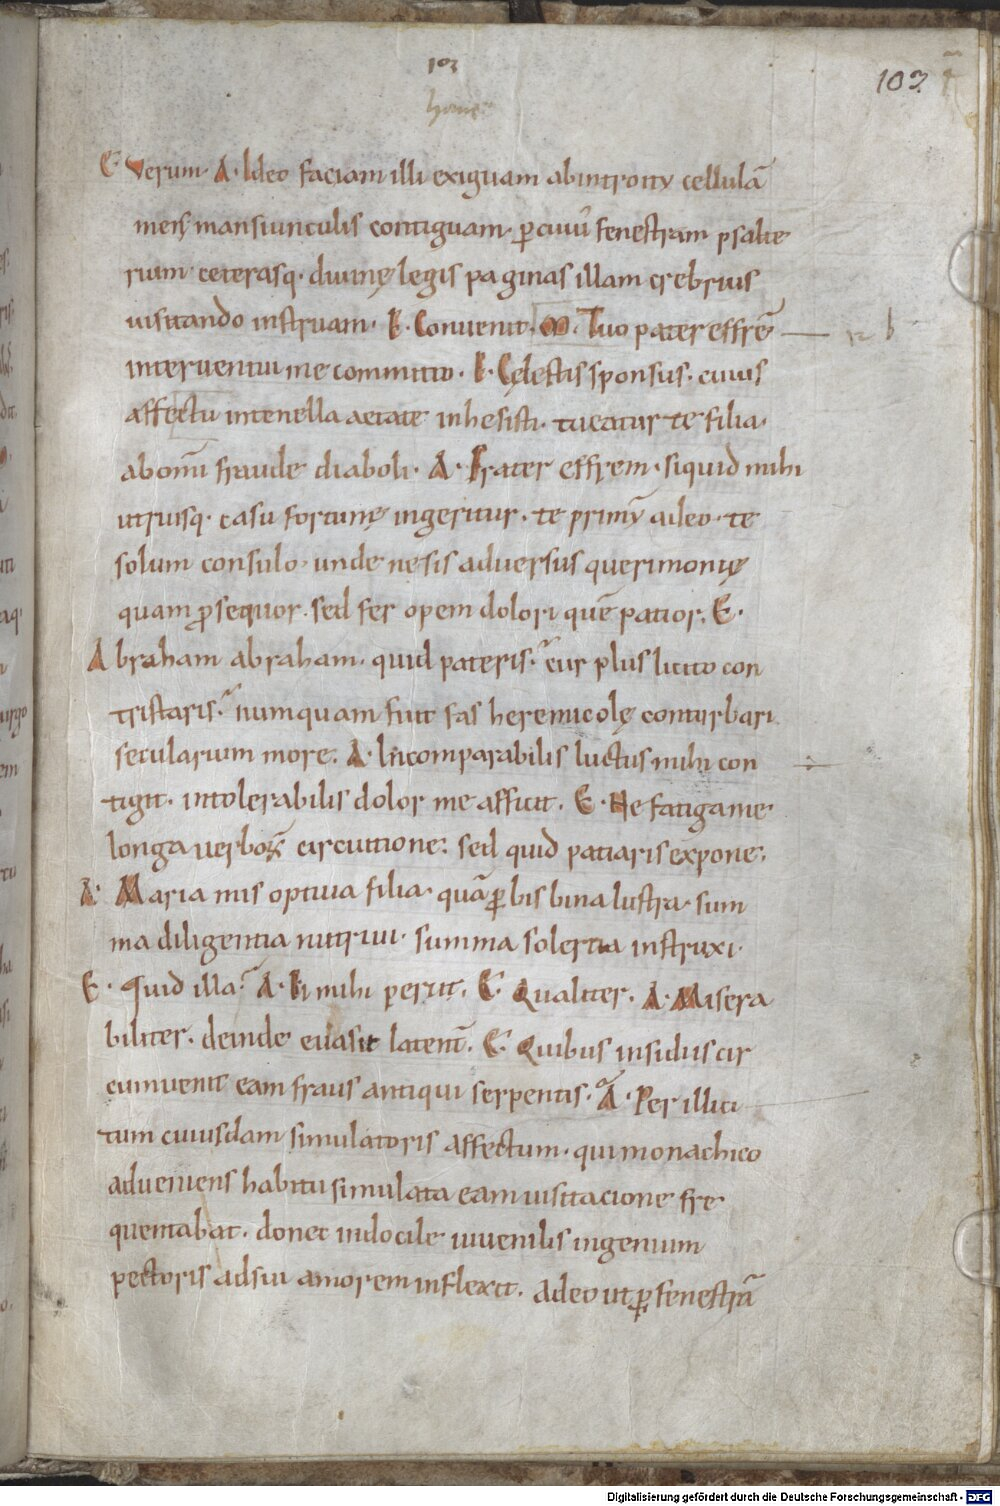 103
103
E. Verum. A. Ideo faciam illi exiguam abintroitu cellulā
meis mansiunculis contiguam. ꝑ cuiꝰ fenestram psalte
rium ceterasq. diuinę legis paginas illam crebrius
uisitando instruam. E. Conuenit. M. Tuo pater effrē
interuentui me committo. E. Cęlestis sponsus. cuius
affectu intenella aetate inhesisti. tueatur te filia.
abomī fraude diaboli. A. Frater effrem. siquid mihi
utriusq. casu fortunę ingeritur. te primū adeo. te
solum consulo. unde ne sis aduersus querimonię
quam ꝓsequor. sed fer opem dolori quē patior. E.
Abraham abraham. quid pateris. cur plus licito con
tristaris. numquam fuit fas heremicolę conturbari
secularium more. A. Incomparabilis luctus mihi con
tigit. intolerabilis dolor me afficit. E. Ne fatiga me
longa uerboꝝ circuitione. sed quid patiaris expone.
A. Maria mis optiua filia. quā ꝑ bis bina lustra. sum
ma diligentia nutriui. summa solertia instruxi.
E. Quid illa. A. Ei mihi periit. E. Qualiter. A. Misera
biliter. deinde euasit latenť. E. Quibus insidiis cir
cumuenit eam fraus antiqui serpentis. A. Per illici
tum cuiusdam simulatoris affectum. qui monachico
adueniens habitu simulata eam uisitacione fre
quentabat. donec indocile iuuenilis ingenium
pectoris ad sui amorem inflexit. Adeo ut ꝑ fenestrā
Digitalisierung gefördert durch die Deutsche Forschungsgemeinschaft - DFG